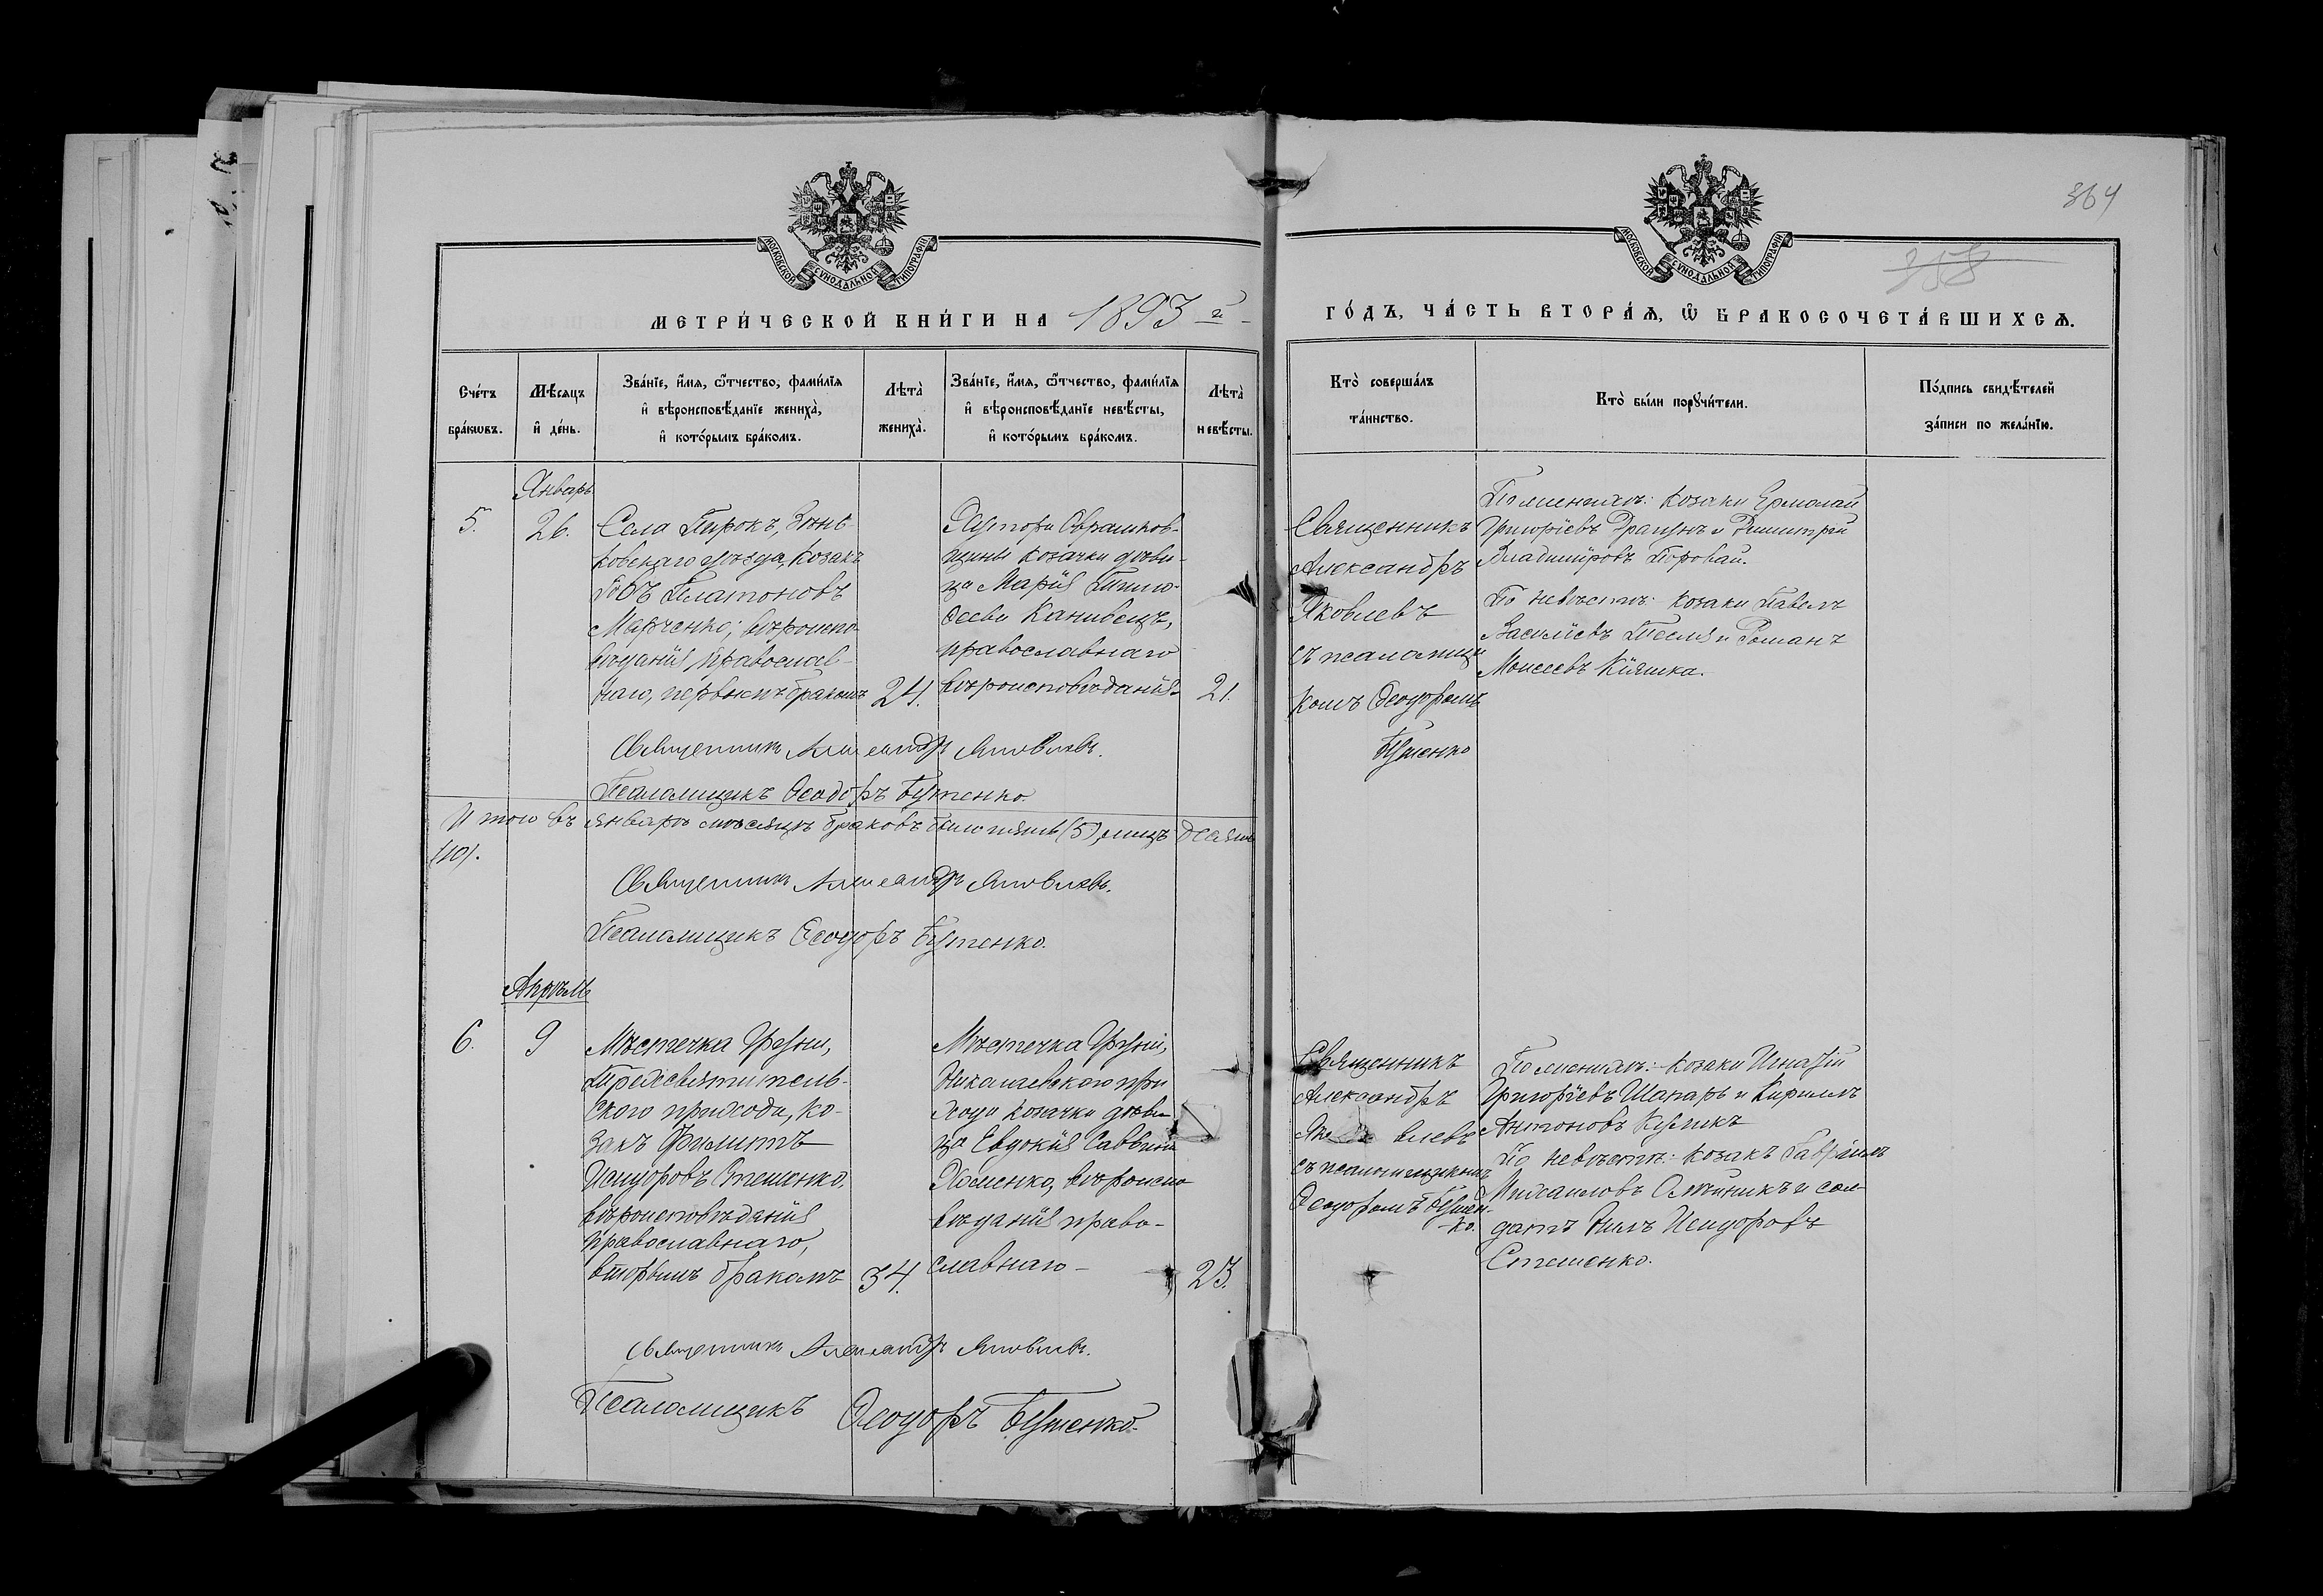 364
358
МОСКОВСКОЙ СѴНОДАЛЬНОЙ ТИПОГРАФІИ
МОСКОВСКОЙ СѴНОДАЛЬНОЙ ТИПОГРАФІИ
МЕТРИ́ЧЕСКОЙ КНИ́ГИ НА 1893 й
ГО́ДЪ, ЧА́СТЬ ВТОРА́Ѧ, Ѿ БРАКОСОЧЕТА́ВШИХСѦ.
Сче́тъ бра́кѡвъ.
Мѣ́сѧцъ и҆ де́нь.
Зва́нїе, и҆́мѧ, ѻ҆́тчество, фами́лїѧ
и҆ вѣроисповѣ́данїе жениха̀,
и҆ кото́рымъ бра́комъ.
Лѣта̀ жениха̀.
Зва́нїе, и҆́мѧ, ѻ҆́тчество, фами́лїѧ
и҆ вѣроисповѣ́данїе невѣ́сты,
и҆ кото́рымъ бра́комъ.
Лѣта̀ невѣ́сты.
Кто̀ соверша́лъ
та́инство.
Кто̀ бы́ли порꙋчи́тели.
По́дпись свидѣ́телей
за́писи по жела́нїю.
Январь
5.
26.
Села Пирокъ, Зѣнь-
ковскаго уѣзда, козакъ
Іовъ Платоновъ
Марченко; вѣроиспо-
вѣданія православ-
наго, первымъ бракомъ
24.
козачки дѣви-
ца Марія Тимо-
феева Канивецъ,
православнаго
вѣроисповѣданія
21.
Священникъ
Александръ
Яковлевъ
съ псаломщи
комъ Ѳеодоромъ
Бутенко
По женихѣ: козаки Ермолай
Григоріевъ Драгунъ и Димитрій
Владиміровъ Поровай.
По невѣстѣ: козаки Павелъ
Василіевъ Тесля и Романъ
Моисеевъ Кіяшка.
Священникъ Александръ Яковлевъ.
Псаломщикъ Ѳеодоръ Бутенко.
Итого въ январѣ мѣсяцѣ браковъ было пять (5), лицъ десять
(10).
Священникъ Александръ Яковлевъ.
Псаломщикъ Ѳеодоръ Бутенко.
Апрѣль
6.
9
Мѣстечка Груни,
Трехсвятитель-
ского прихода, ко-
закъ Филиппъ
Исидоровъ Стешенко.
вѣроисповѣданія
православнаго,
вторымъ бракомъ
34.
Мѣстечка Груни,
Николаевского при
хода козачки дѣви
ца Евдокія Саввина
Хоменко, вѣроиспо
вѣданія право-
славнаго
23.
Священникъ
Александръ
Яковлевъ
съ псаломщикомъ
Ѳеодоромъ Бутен-
ко.
По женихѣ: козаки Игнатій
Григоріевъ Шапарь и Кириллъ
Антоновъ Куликъ
По невѣстѣ: козакъ Гавріилъ
Михаиловъ Олейникъ и сол-
датъ Нилъ Исидоровъ
Стешенко.
Священникъ Александръ Яковлевъ.
Псаломщикъ Ѳеодоръ Бутенко.